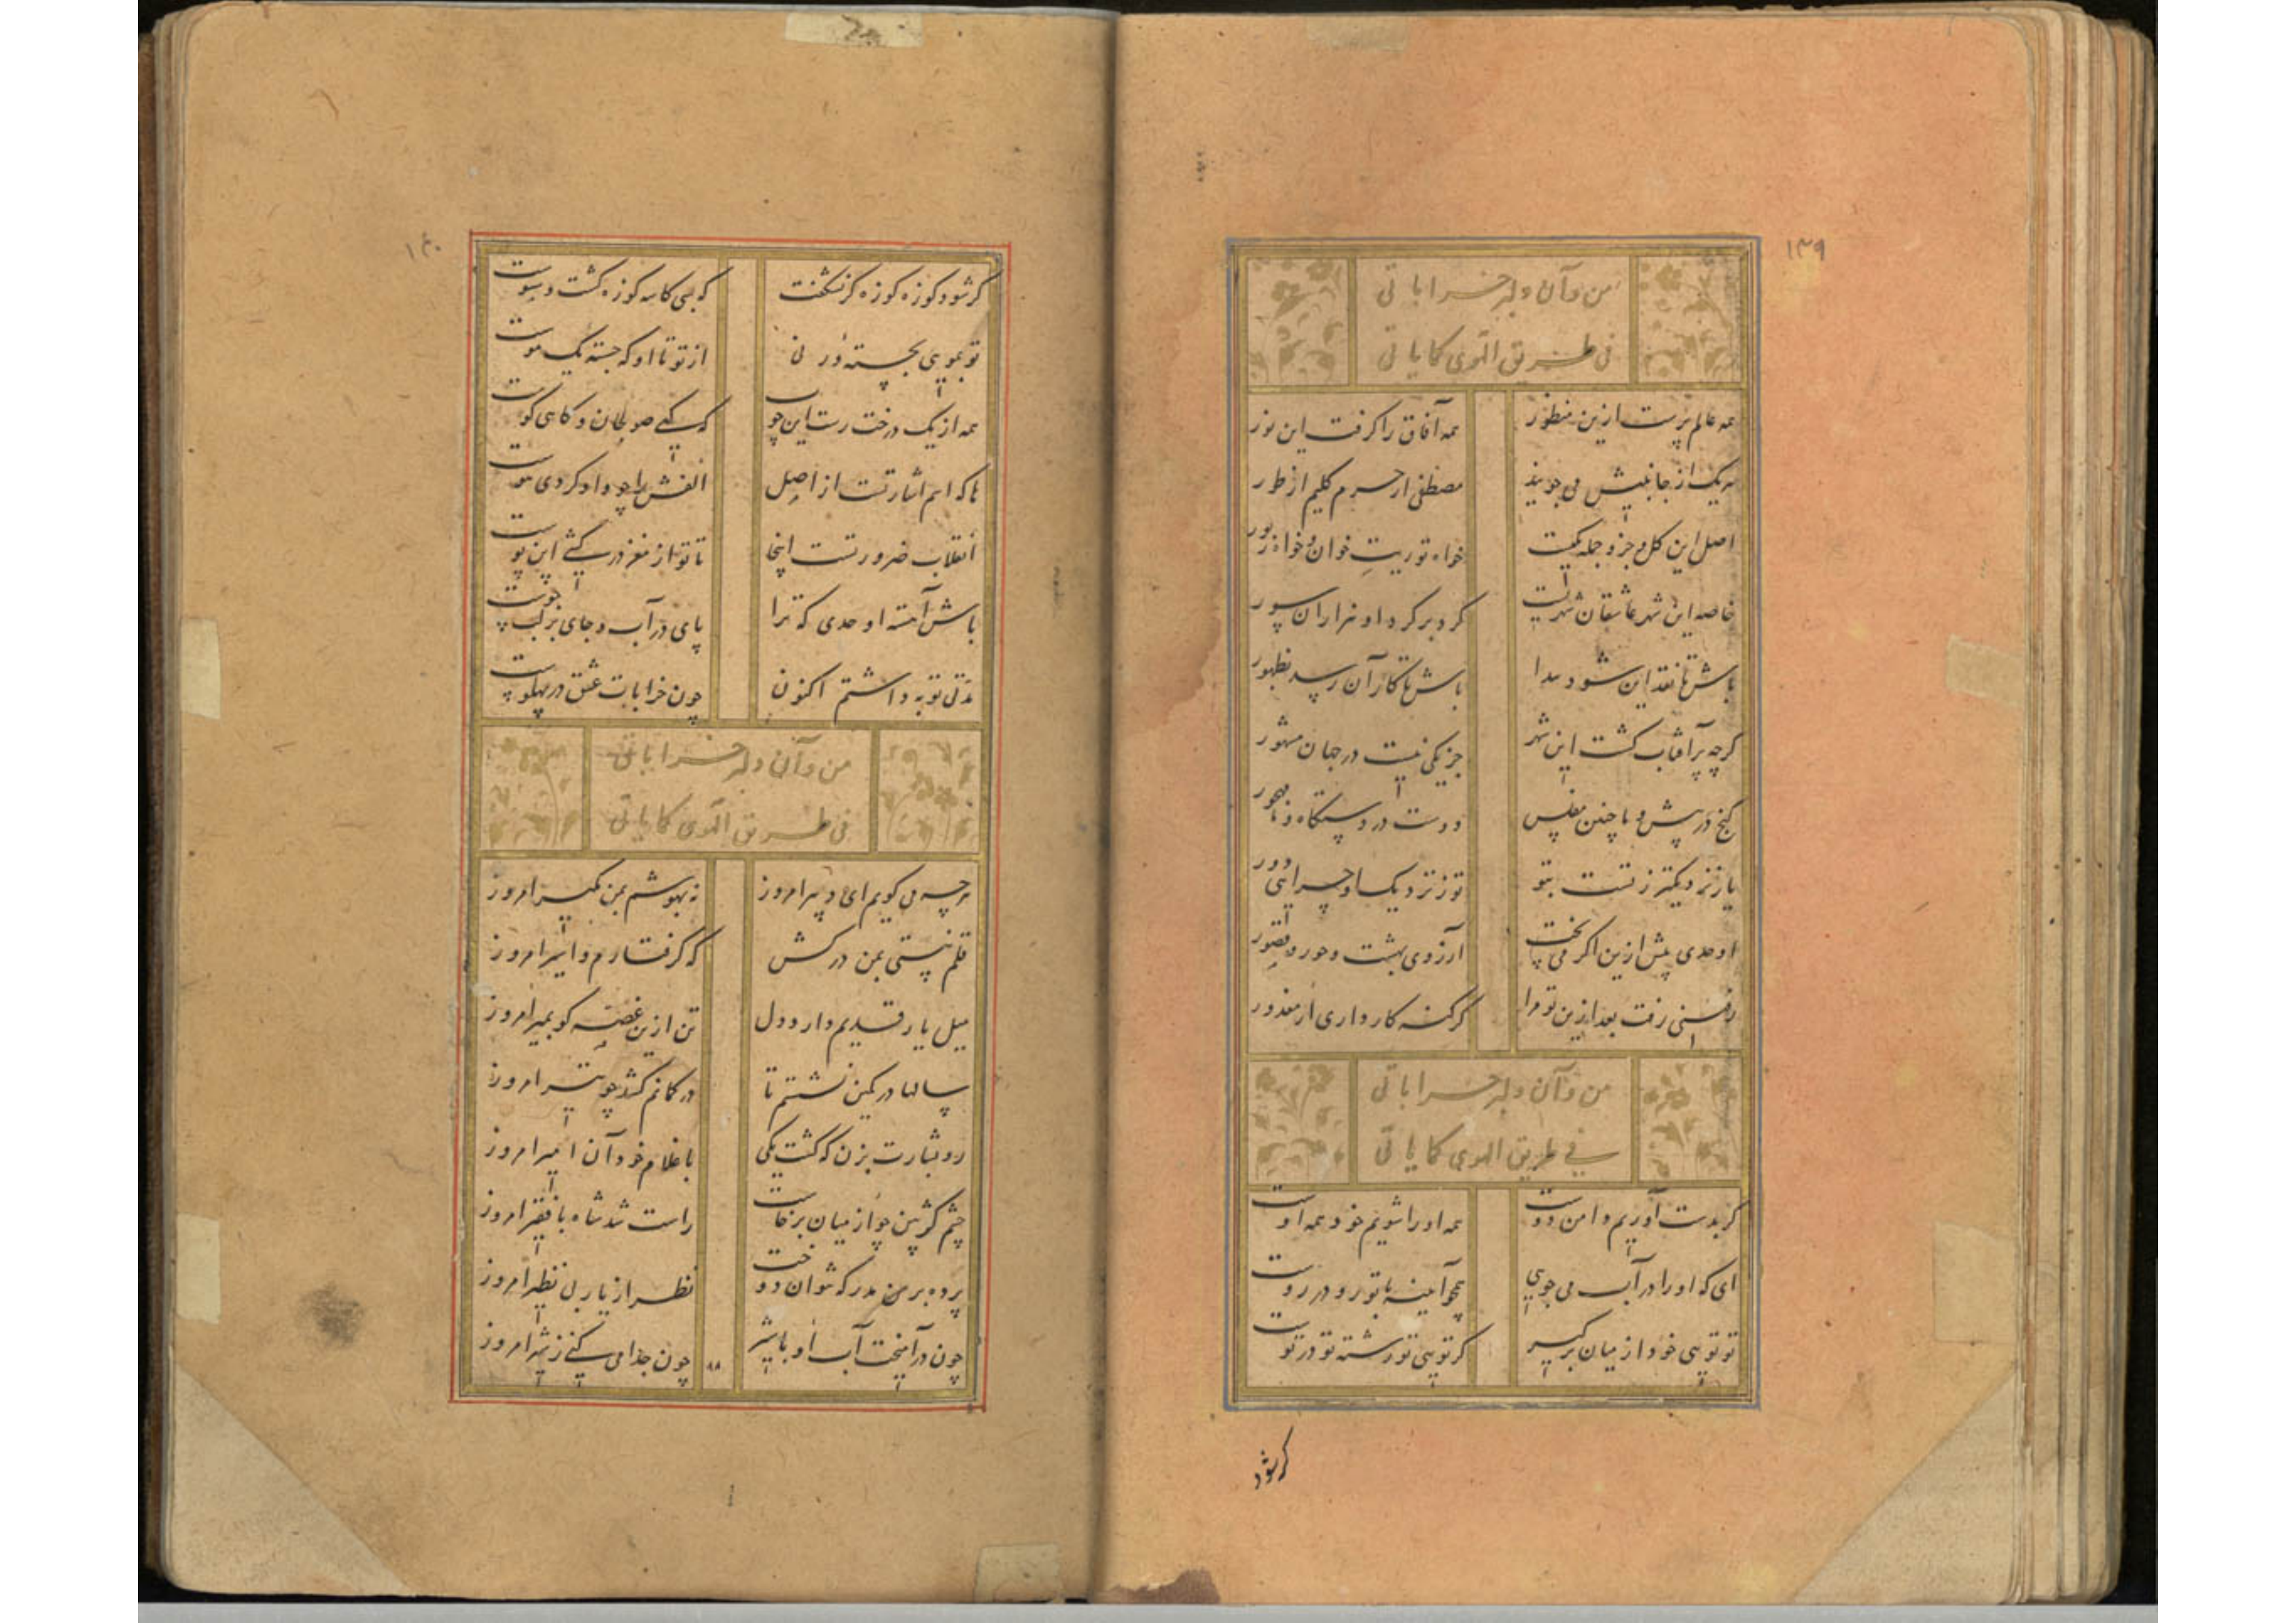 ۱۳۹
من و آن دلبر خراباتی
فی طریق الهوی کمایاتی
همه عالم پرست ازین منظور
همه آفاق را گرفت این نور
هر یک از جانبیش می جویند
مصطفی از حرم کلیم از طور
اصل این کل و جزو جمله یکیست
خواه توریت خوان و خواه زبور
خاصه این شهر عاشقان شهریست
گرد بر گرد او هزاران سور
باش تا نقد این شود پیدا
باش تا کار آن رسد بظهور
گرچه پر آفتاب گشت این شهر
جز یکی نیست در جهان مشهور
گنج در پیش و ما چنین مفلس
دوست در دستگاه و ما مهجور
یار نزدیکتر ز تست بتو
تو ز نزدیک او چرایی دور
اوحدی پیش ازین اگر می پخت
آرزوی بهشت و حور و قصور
رفتنی رفت بعد ازین تو مرا
گر گنه کار داری ار معذور
من و آن دلبر خراباتی
فی طریق الهوی کمایاتی
گر بدست آوریم دامن دوست
همه او را شویم خود همه اوست
ای که او را در آب می جویی
همچو آیینه با تو رو در روست
تو تویی خود از میان برگیر
گر تویی تو رشته تو در توست
گر شود
۱۴۰
گر شود کوزه کوزه گر نشگفت
که بسی کاسه کوزه گشت و سبوست
تو بمویی بجسته ور نی
از تو تا او که جسته یک موست
همه از یک درخت رست این چوب
که گهی صولجان و گاهی گوست
ها که اسم اشارتست از اصل
الفش را چو واو کردی هوست
انقلاب ضرورتست اینجا
تا تو از مغز درکشی این پوست
باش آهسته اوحدی که ترا
پای در آب و جای بر لب جوست
مدتی توبه داشتم اکنون
چون خرابات عشق در پهلوست
من و آن دلبر خراباتی
فی طریق الهوی کمایاتی
هرچه می گویم ای دبیر امروز
نه بهوشم بمن مگیر امروز
قلم نیستی بمن درکش
که گرفتارم و اسیر امروز
میل یار قدیم دارد دل
تن ازین غصه گو بمیر امروز
سالها در کمین نشستم تا
در کمانم کشد چو تیر امروز
رو بشارت بزن که گشت یکی
با غلام خود آن امیر امروز
چشم کژبین چو از میان برخاست
راست شد شاه با فقیر امروز
پرده بر من مدر که نتوان دوخت
نظر از یار بی نظیر امروز
چون درآمیخت آب او با شیر
چون جدا می کنی ز شیر امروز